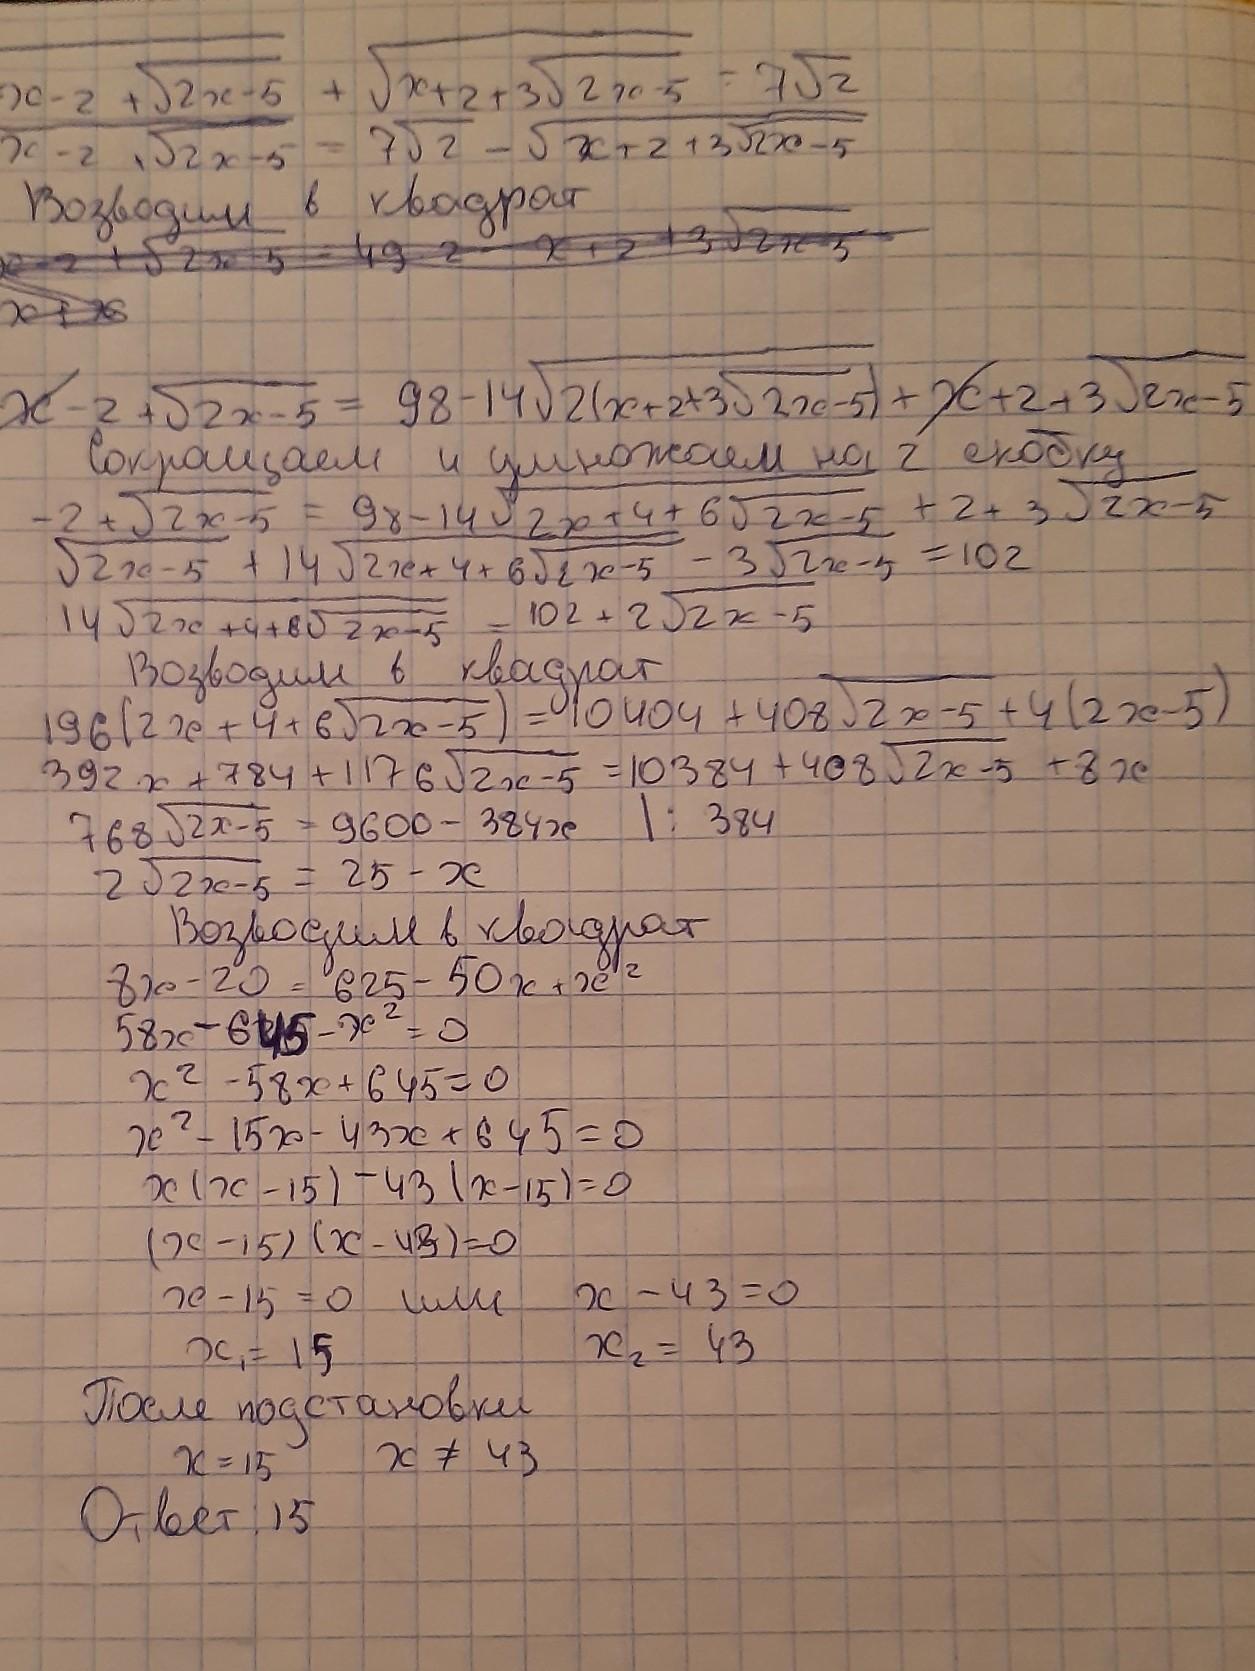 √(x-2+√(2x-5)) + √(x+2+3√(2x-5)) = 7√2
√(x-2+√(2x-5)) = 7√2 - √(x+2+3√(2x-5))
Возводим в квадрат
x-2+√(2x-5) = 49·2 - x+2+3√(2x-5)
x+x
x-2+√(2x-5) = 98-14√(2(x+2+3√(2x-5))) + x+2+3√(2x-5)
Сокращаем и умножаем на 2 скобку
-2+√(2x-5) = 98-14√(2x+4+6√(2x-5)) + 2+3√(2x-5)
√(2x-5) + 14√(2x+4+6√(2x-5)) - 3√(2x-5) = 102
14√(2x+4+6√(2x-5)) = 102+2√(2x-5)
Возводим в квадрат
196(2x+4+6√(2x-5)) = 10404+408√(2x-5)+4(2x-5)
392x+784+1176√(2x-5) = 10384+408√(2x-5)+8x
768√(2x-5) = 9600-384x |: 384
2√(2x-5) = 25-x
Возводим в квадрат
8x-20 = 625-50x+x²
58x-645-x² = 0
x²-58x+645=0
x²-15x-43x+645=0
x(x-15)-43(x-15)=0
(x-15)(x-43)=0
x-15=0 или x-43=0
x₁=15 x₂=43
После подстановки
x=15 x≠43
Ответ: 15